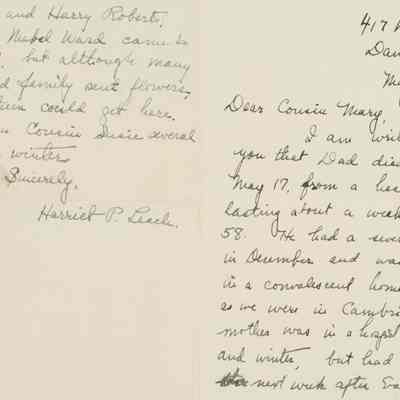 and Harry Roberts,
Mabel Ward came to
but although many
d family sent flowers,
could get here.
Cousin Susie several
winters
Sincerely,
Harriet P. Leach.
417 W
Dan
M
Dear Cousin Mary,
I am writ
you that Dad died
May 17, from a hea
lasting about a week
58. He had a seve
in December and was
in a convalescent home
as we were in Cambri
mother was in a hospit
and winter, but had
next week after. Ea